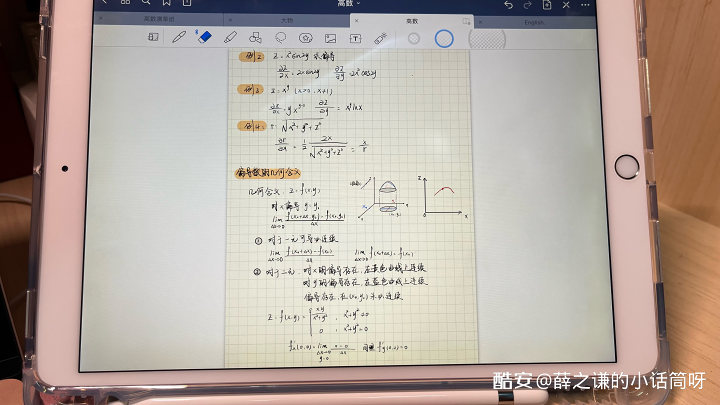 高数
高数测草纸 大物 高数 English
例2 z = x²sin2y 求偏导
∂z/∂x = 2xsin2y ∂z/∂y = 2x²cos2y
例3 z = x^y (x>0, x≠1)
∂z/∂x = y x^(y-1) ∂z/∂y = x^y lnx
例4 r = √(x²+y²+z²)
∂r/∂x = 1/2 · 2x/√(x²+y²+z²) = x/r
偏导数的几何含义
几何含义 z = f(x,y)
对x偏导 y=y₀
lim Δx→0 (f(x₀+Δx, y₀) - f(x₀,y₀))/Δx
① 对于一元可导必连续
lim Δx→0 (f(x₀+Δx) - f(x₀))/Δx lim Δx→0 f(x₀+Δx) = f(x₀)
② 对于二元,对x的偏导存在,在蓝色曲线上连续
对y的偏导存在,在蓝色曲线上连续
偏导存在,在(x₀,y₀)未必连续
z = f(x,y) = { xy/(x²+y²), x²+y²≠0
0, x²+y²=0
同理 f'y(0,0)=0
酷安@薛之谦的小话筒呀